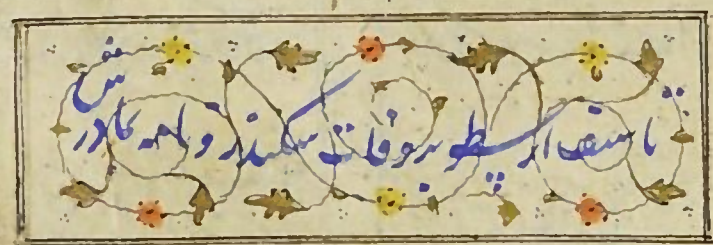 تاسف ارسطو بر وفات سکندر و نامه مادرش